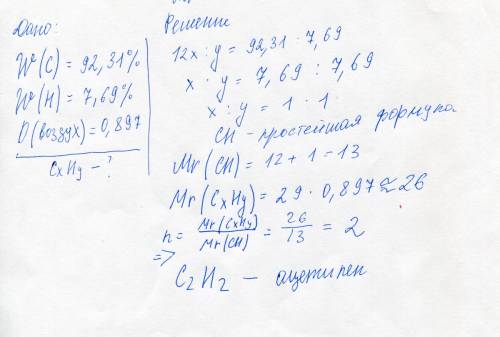 Дано:
W(C) = 92,31%
W(H) = 7,69%
D(воздух) = 0,897
CxHy - ?
Решение
12x : y = 92,31 · 7,69
x · y = 7,69 : 7,69
x : y = 1 · 1
CH - простейшая формула
Mr(CH) = 12 + 1 = 13
Mr(CxHy) = 29 · 0,897 ≈ 26
n = Mr(CxHy)/Mr(CH) = 26/13 = 2
=>
C2H2 - ацетилен